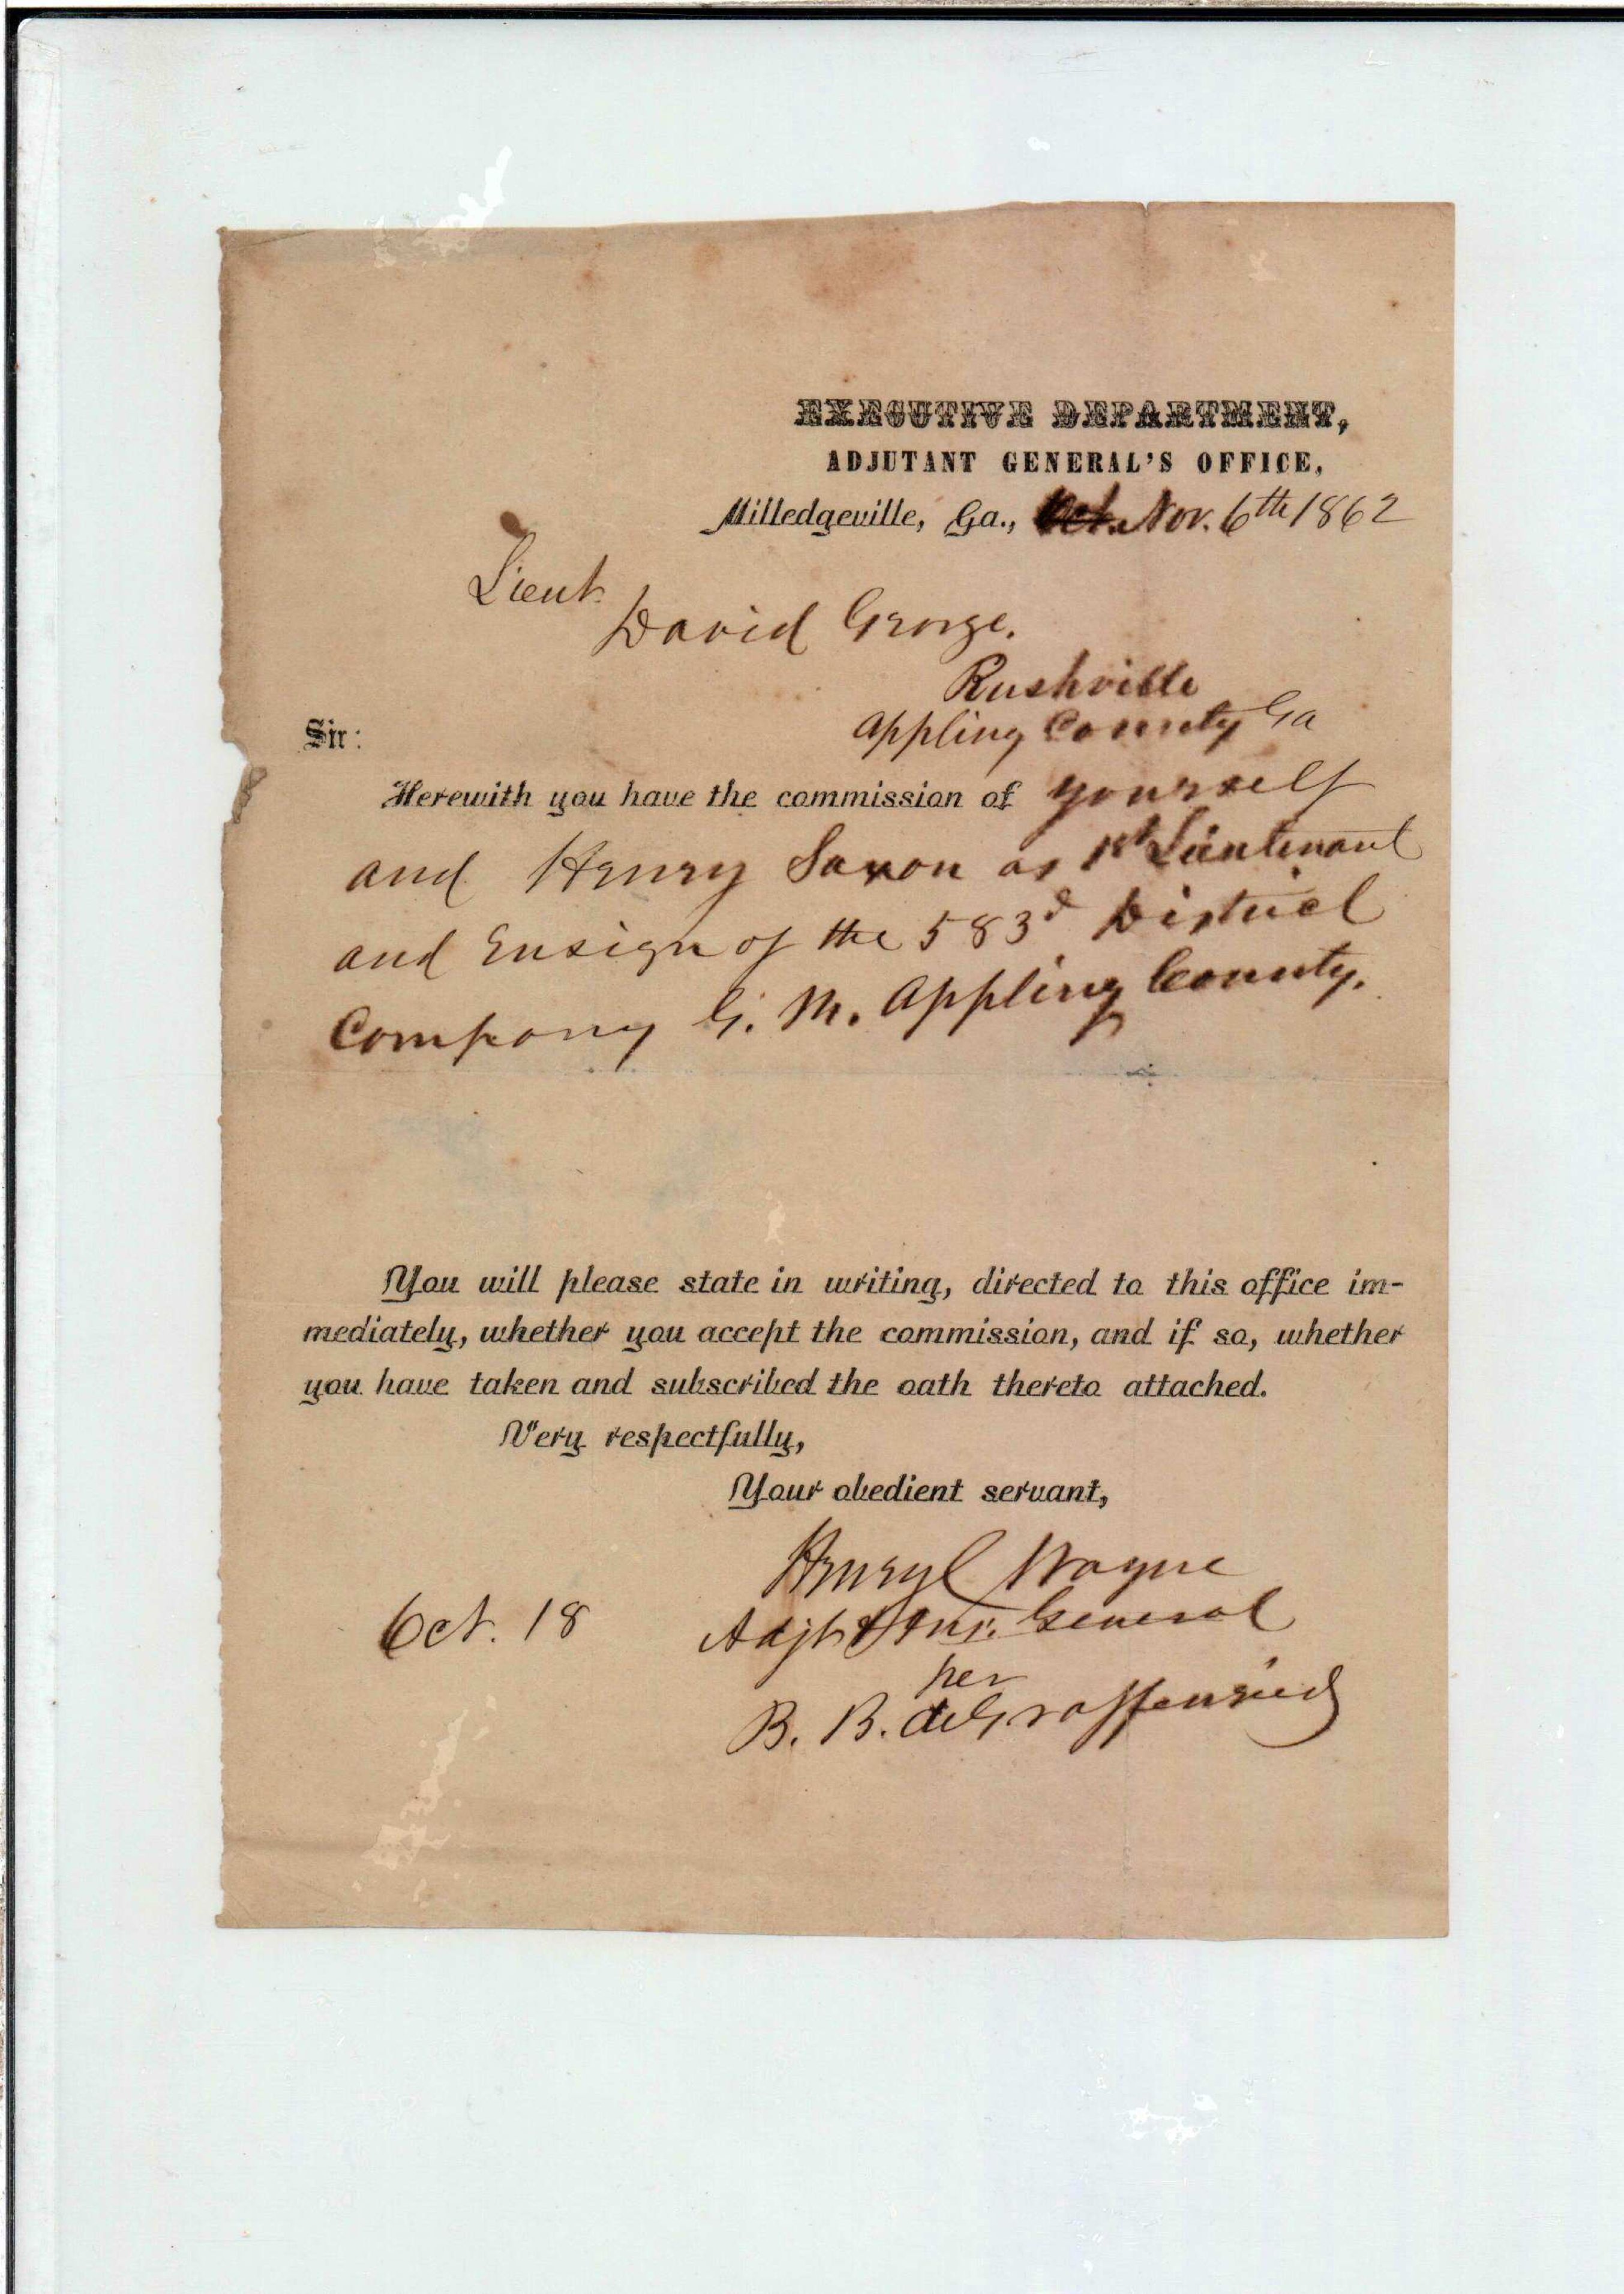 EXECUTIVE DEPARTMENT,
ADJUTANT GENERAL'S OFFICE,
Milledgeville, Ga., Oct. Nov. 6th 1862
Lieut.
David George.
Rushville
Appling County Ga
Sir:
Herewith you have the commission of yourself
and Henry Saxon as 1st Lieutenant
and Ensign of the 583d District
Company G. M. Appling County.
You will please state in writing, directed to this office im-
mediately, whether you accept the commission, and if so, whether
you have taken and subscribed the oath thereto attached.
Very respectfully,
Your obedient servant,
Henry C Wayne
Oct. 18 Adjt & Ins. General
per
B. B. deGraffenried